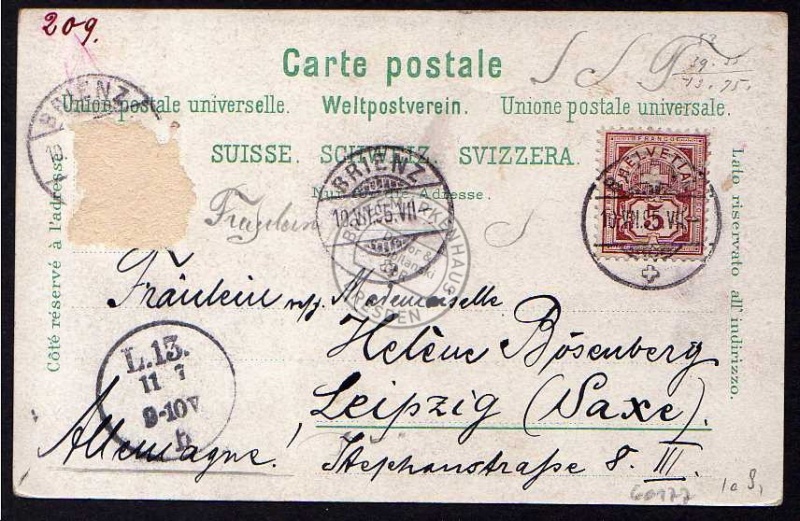 209.
Carte postale
Union postale universelle. Weltpostverein. Unione postale universale.
SUISSE. SCHWEIZ. SVIZZERA.
Nur für die Adresse.
Côté réservé à l'adresse.
Lato riservato all'indirizzo.
BRIENZ
BRIENZ
HELVETIA
FRANCO
5
Fräulein
DRESDEN
Fräulein resp. Mademoiselle
Helène Bösenberg
Leipzig (Saxe).
Allemagne! Stephanstraße 8 III.
L.13.
11 7
9-10V